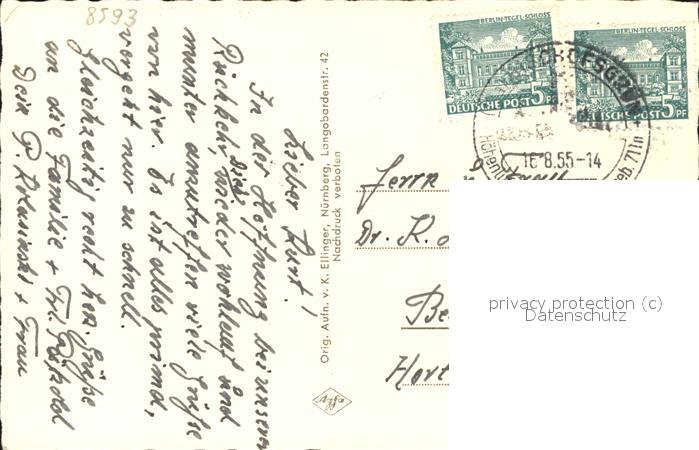 8593
Lieber Kurt!
In der Hoffnung bei unserer
Rückkehr Dich wieder wohlauf und
munter anzutreffen viele Grüße
von hier. Es ist alles prima,
vergeht nur zu schnell.
Gleichzeitig recht herz. Grüße
an die Familie + Frl.
Dein P. + Frau
Orig. Aufn. v. K. Ellinger, Nürnberg, Langobardenstr. 42
Nachdruck verboten
Agfa
BERLIN-TEGEL·SCHLOSS
DEUTSCHE POST 5 PF
BERLIN-TEGEL·SCHLOSS
DEUTSCHE POST 5 PF
16.8.55-14
Herrn
Dr. K.
Be
Hort
privacy protection (c)
Datenschutz